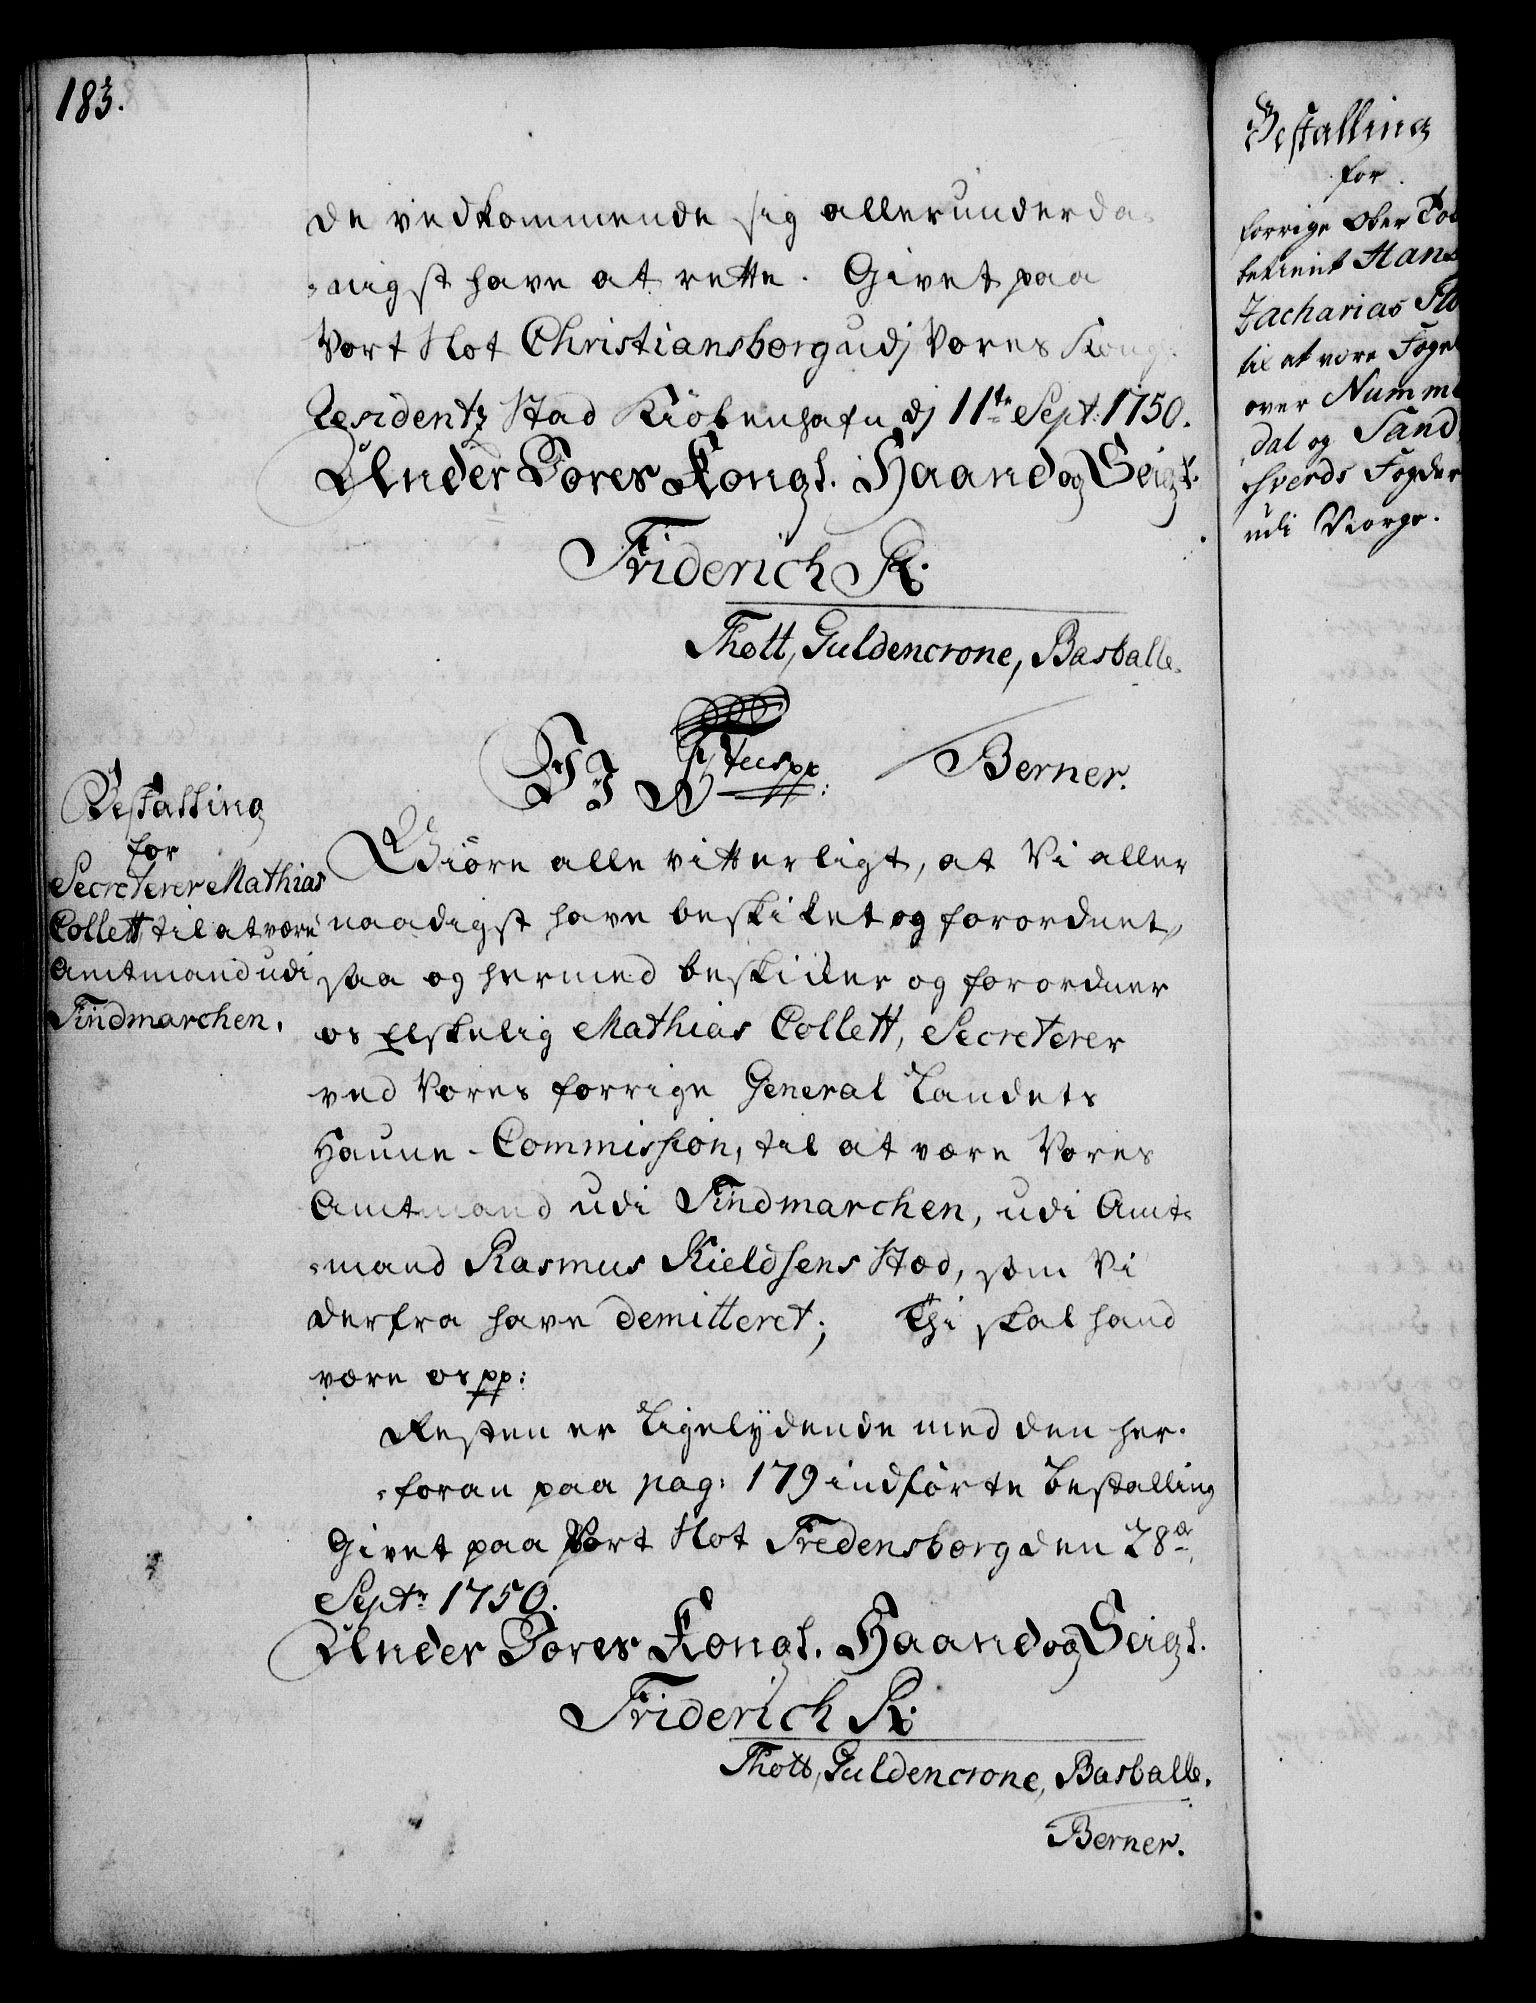 183.
de vedkommende sig allerunderda-
-nigst have at rette. Givet paa
Vort Slot Christiansborg udj Vores Kongl:
Residentz Stad Kiöbenhafn dj 11te Sept: 1750.
Under Vores Kongl. Haand og Seigl.
Friderich R.
Thott, Guldencrone, Basballe.
Berner.
Bestalling
for
Secreterer Mathias
Collett til at være
Amtmand udi
Findmarchen.
Vi Friderich den Femte pp:
Giöre alle vitterligt, at Vi aller
naadigst have beskiket og forordnet,
saa og hermed beskikker og forordner
os Elskelig Mathias Collett, Secreterer
ved Vores forrige General Landets
Haune-Commission, til at være Vores
Amtmand udi Findmarchen, udi Amt-
-mand Rasmus Kieldsens Stæd, som Vi
derfra have demitteret; Thi skal hand
være os pp:
Resten er Ligelÿdende med den her-
-foran paa pag: 179 indförte Bestalling
Givet paa Vort Slot Fredensborg den 28de
Septr: 1750.
Under Vores Kongl. Haand og Seigl.
Friderich R.
Thott, Guldencrone, Basballe.
Berner.
Bestalling
for
forrige Ober
betient Hans
Zacharias
til at være Foged
over Numme
dal og Sand
sverds Fogder
udi Norge.